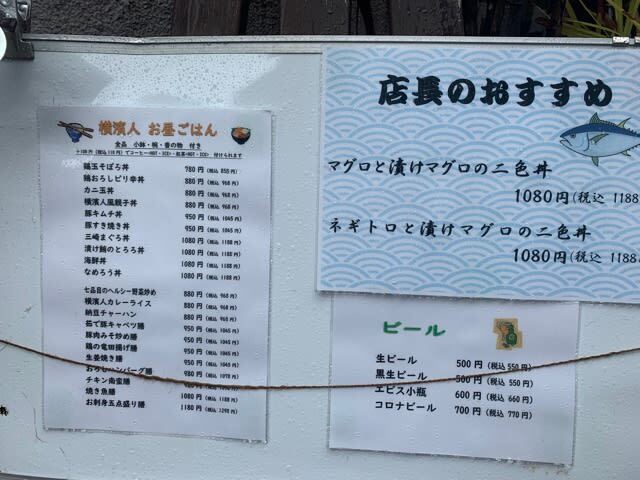 横濱人 お昼ごはん
全品 小鉢・椀・香の物 付き
+100円(税込110円)でコーヒー(HOT・ICE)・紅茶(HOT・ICE) 付けられます
鶏玉そぼろ丼 780円(税込 858円)
鶏おろしピリ辛丼 880円(税込 968円)
カニ玉丼 880円(税込 968円)
横濱人風親子丼 880円(税込 968円)
豚キムチ丼 950円(税込 1045円)
豚すき焼き丼 950円(税込 1045円)
三崎まぐろ丼 1080円(税込 1188円)
漬け鮪のとろろ丼 1080円(税込 1188円)
海鮮丼 1080円(税込 1188円)
なめろう丼 1080円(税込 1188円)
七品目のヘルシー野菜炒め 880円(税込 968円)
横濱人カレーライス 880円(税込 968円)
納豆チャーハン 880円(税込 968円)
茹で豚キャベツ膳 950円(税込 1045円)
豚肉みそ炒め膳 950円(税込 1045円)
鶏の竜田揚げ膳 950円(税込 1045円)
生姜焼き膳 950円(税込 1045円)
おろしハンバーグ膳 980円(税込 1078円)
チキン南蛮膳 980円(税込 1078円)
焼き魚膳 1080円(税込 1188円)
お刺身五点盛り膳 1180円(税込 1298円)
店長のおすすめ
マグロと漬けマグロの二色丼
1080円(税込 1188
ネギトロと漬けマグロの二色丼
1080円(税込 1188
ビール
生ビール 500円(税込 550円)
黒生ビール 500円(税込 550円)
エビス小瓶 600円(税込 660円)
コロナビール 700円(税込 770円)